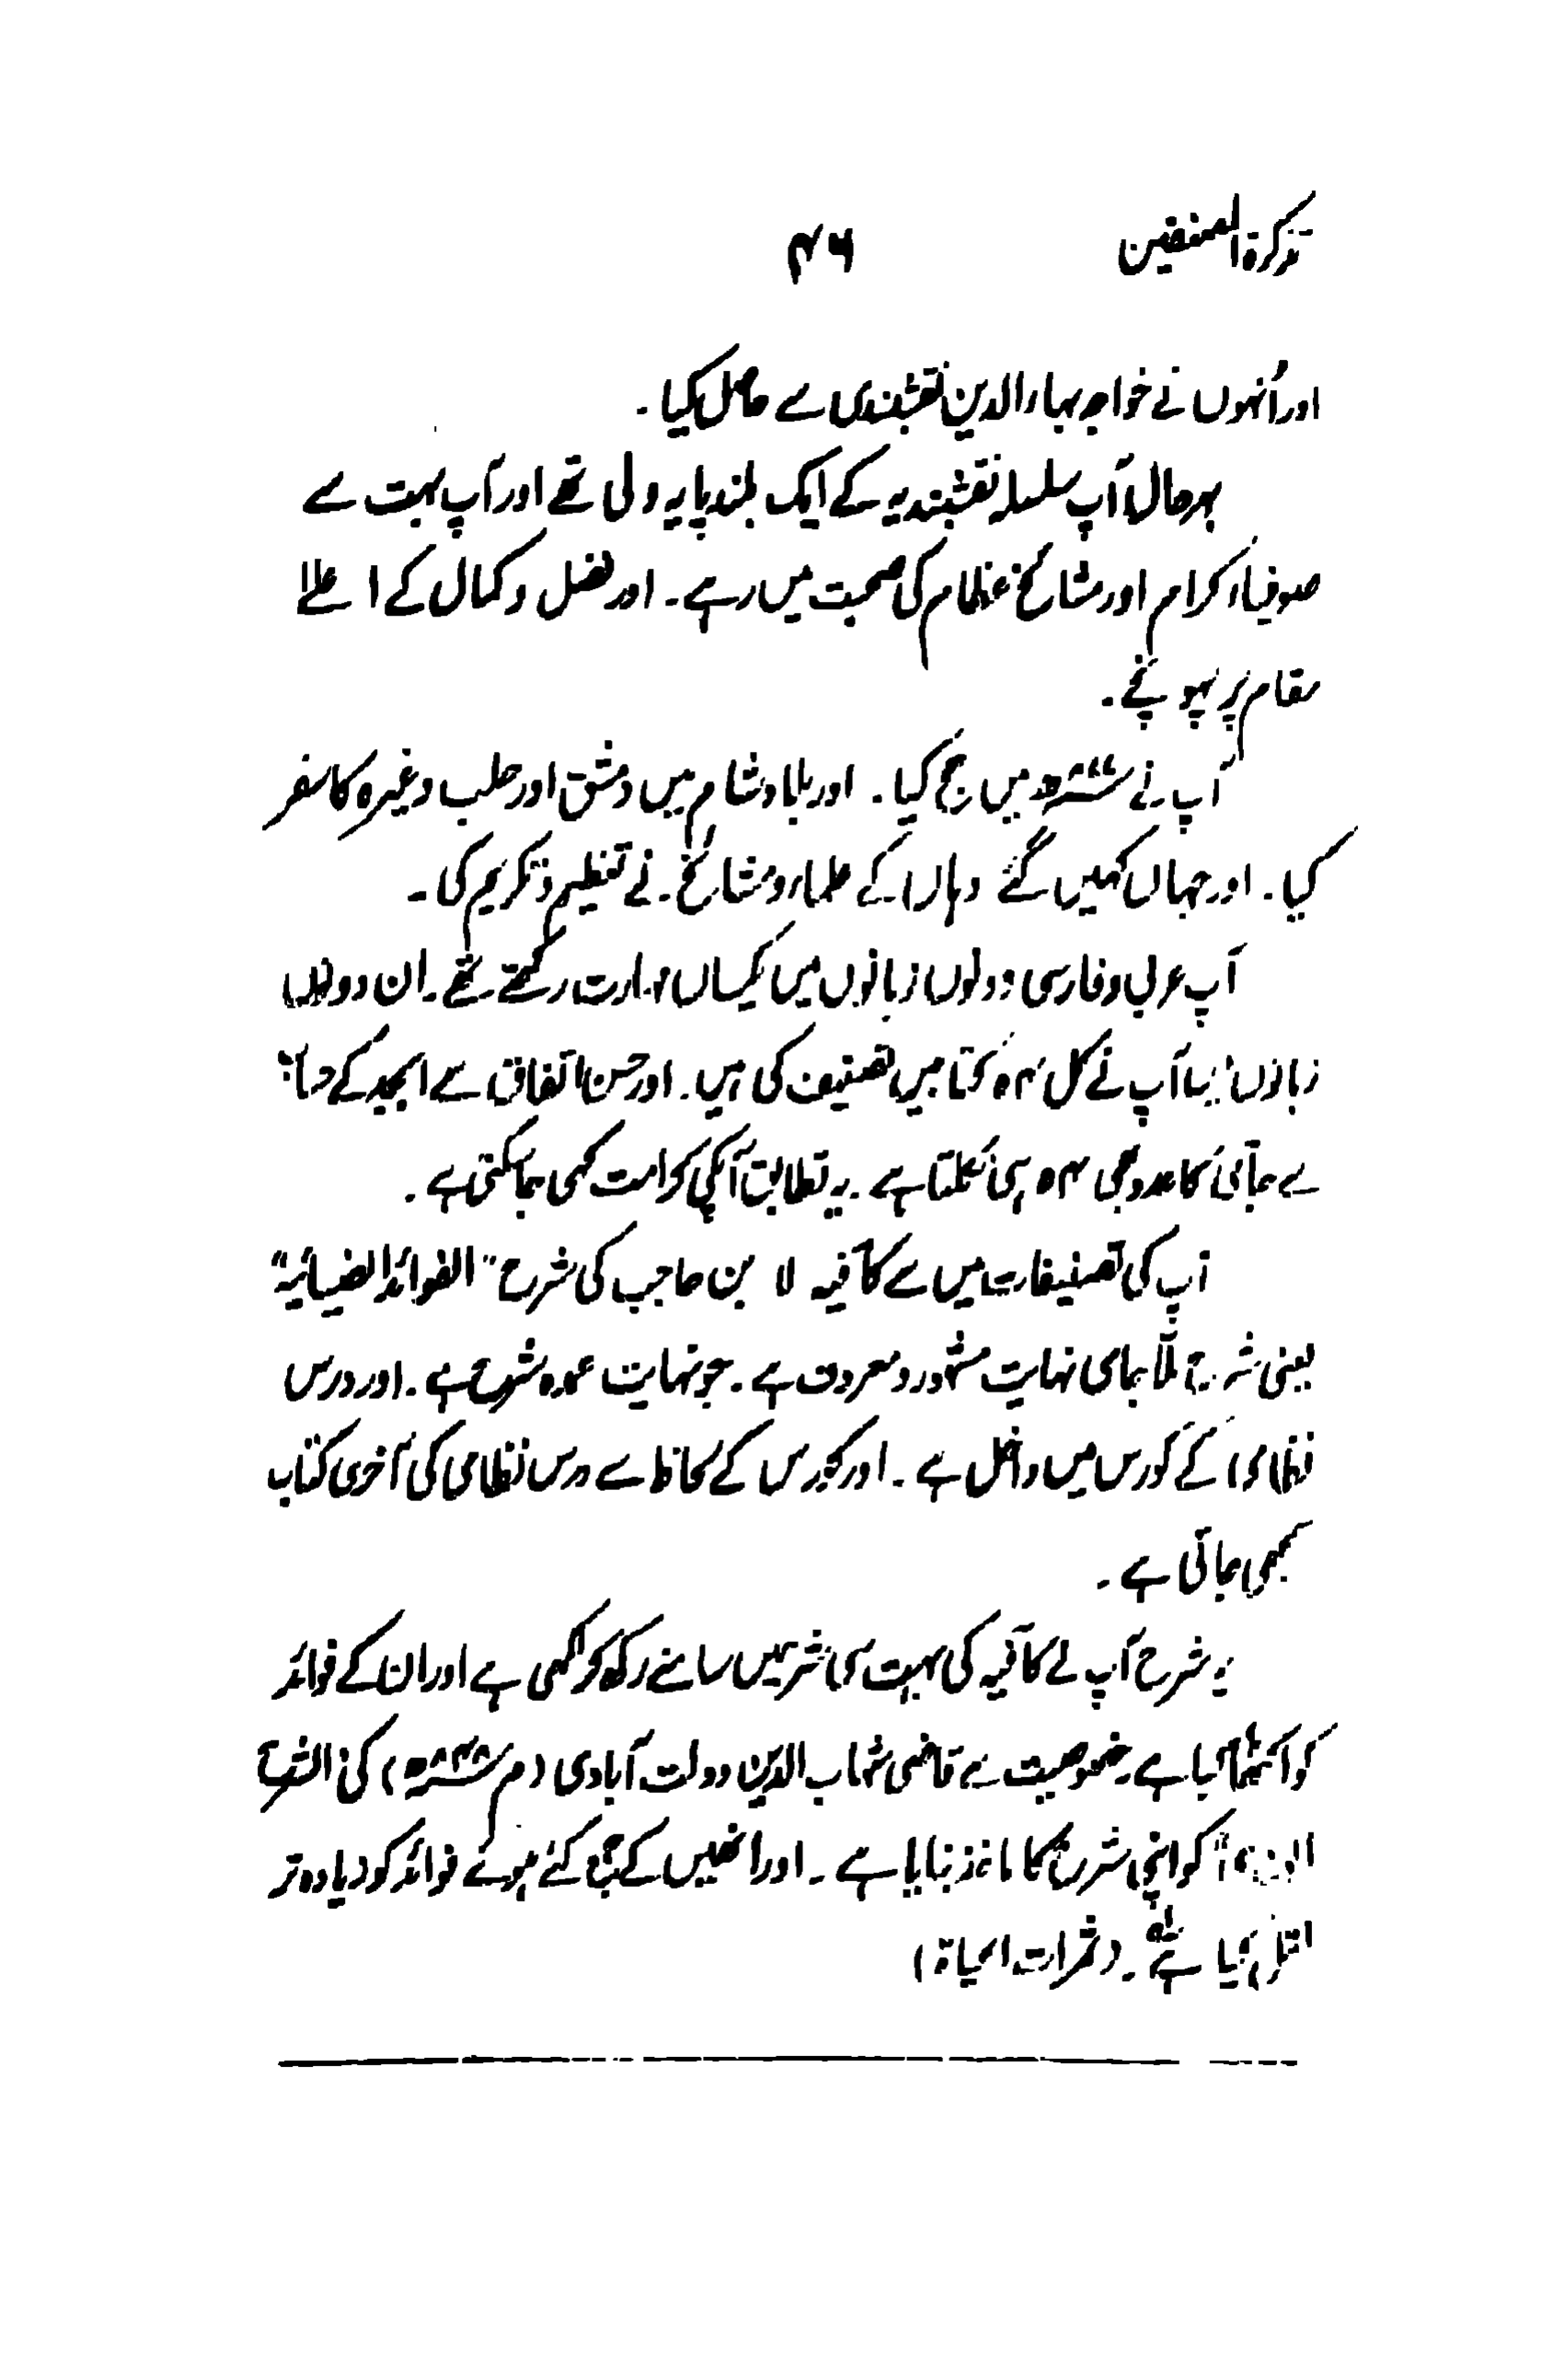 تذکرۃ المصنفین ۴۶
اور اُنہوں نے خواجہ بہاء الدین نقشبندی سے حاصل کیا۔
بہرحال آپ سلسلہ نقشبندیہ کے ایک بلند پایہ ولی تھے اور آپ بہت سے
صوفیاء کرام اور مشائخ عظام کی صحبت میں رہے۔ اور فضل و کمال کے اعلےٰ
مقام پر پہونچے۔
آپ نے میں حج کیا۔ اور بلاد شام میں دمشق اور حلب وغیرہ کا سفر
کیا۔ اور جہاں کہیں گئے وہاں کے علماء و مشائخ نے تعظیم و تکریم کی۔
آپ عربی و فارسی دونوں زبانوں میں یکساں مہارت رکھتے تھے۔ ان دونوں
زبانوں میں آپ نے کل ۵۴ کتابیں تصنیف کی ہیں۔ اور حسن اتفاق سے ابجد کے حساب
سے جامی کا عدد بھی ۵۴ ہی نکلتا ہے۔ یہ تطابق آپکی کرامت کہی جاسکتی ہے۔
آپ کی تصنیفات میں سے کافیہ لا بن حاجب کی شرح "الفوائد الضیائیہ"
یعنی شرح ملّا جامی نہایت مشہور و معروف ہے۔ جو نہایت عمدہ شرح ہے۔ اور درس
نظامی کے کورس میں داخل ہے۔ اور کورس کے لحاظ سے درس نظامی کی آخری کتاب
سمجھی جاتی ہے۔
یہ شرح آپ نے کافیہ کی بہت سی شرحیں سامنے رکھ کر لکھی ہے اور ان کے فوائد
کو اکٹھا کیا ہے۔ خصوصیت سے قاضی شہاب الدین دولت آبادی (م ) کی
کو اپنی شرح کا ماخذ بنایا ہے۔ اور انھیں کے جمع کئے ہوئے فوائد کو زیادہ تر
نقل کیا ہے۔ (ثمرات الحیاۃ)